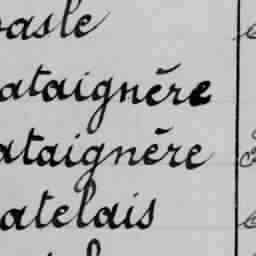 basle
ataignēre
ataignēre
atelais